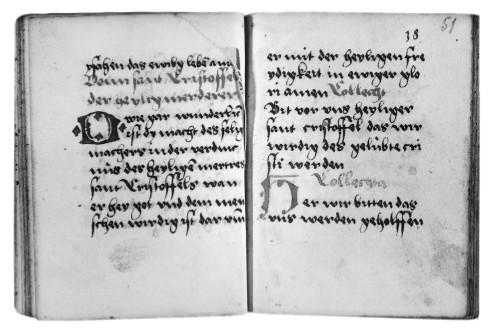 rschen das ewig lebē ang
Vonn sant Cristoffels
der heylig merderer
O wie gar wunderlich
ist dy macht des selig
machers in der verduc
nus des heyligē mertres
sant Cristoffels wan
er hey got vnd dem men
schen wirdig ist dar vm
38
51
er mit der heyligen fre
ydigkeit in ewiger glo
ri amen Collecht
Bit vor vns heyliger
sant cristoffel das wir
wirdig des gelübte cri
sti werden
Collechta
Her wir bitten das
vns werden geholffen